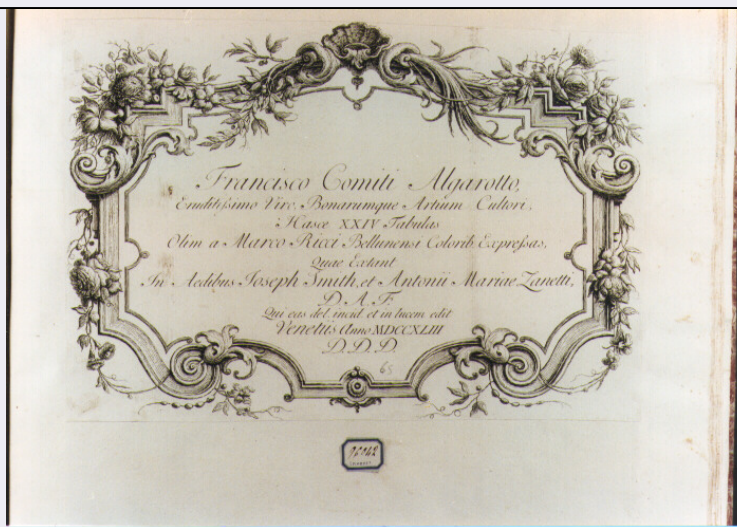 Francisco Comiti Algarotto,
Eruditissimo Viro, Bonarumque Artium Cultori,
Hasce XXIV Tabulas
Olim a Marco Ricci Bellunensi Colorib. Expressas,
Quae Extant
In Aedibus Ioseph Smith, et Antonii Mariae Zanetti,
D. A. F.
Qui eas del. incid. et in lucem edit
Venetiis Anno MDCCXLIII
D. D. D.
65